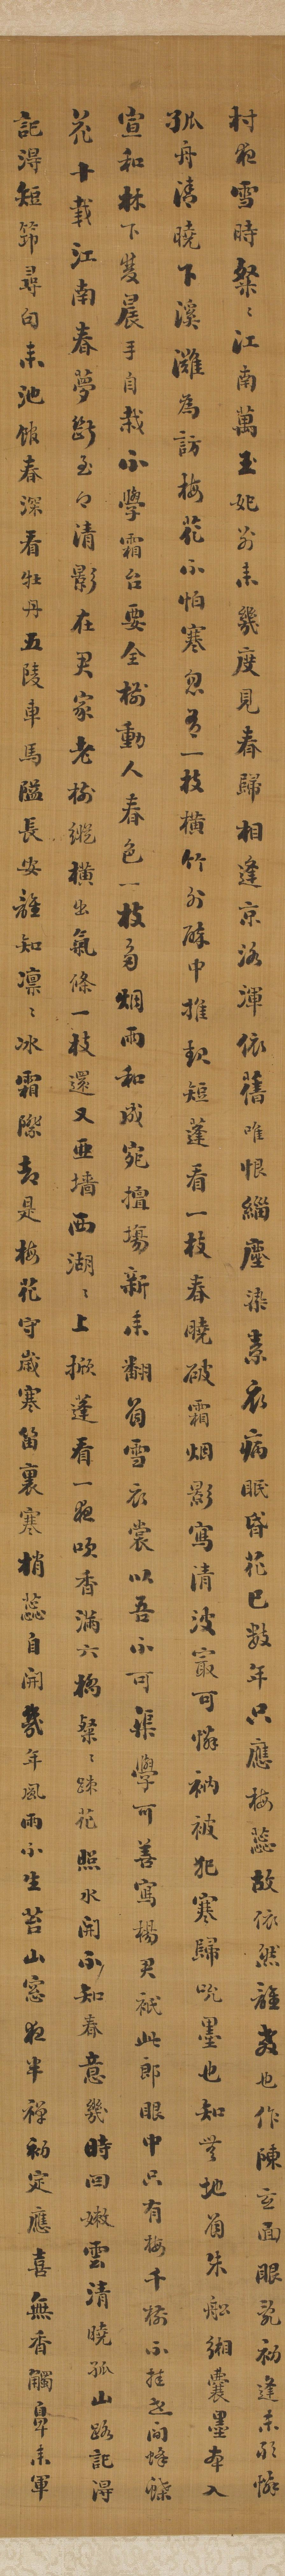 村夜雪時粲〻江南萬玉妃別來幾度見春歸相逢京洛渾依舊唯恨緇塵染素衣病眼昏花已數年只應梅蕊故依然誰教也作陳玄面眼亂初逢未敢憐
孤舟清曉下溪灘為訪梅花不怕寒忽有一枝橫竹外醉中推契短蓬看一枝春曉破霜烟影寫清波最可憐衲被犯寒歸吮墨也知無地著朱鉛緗囊墨本入
宣和林下蕤晨手自栽不學霜台要全樹動人春色一枝多烟雨和成宛擅場新來翻著雪衣裳以吾不可渠學可善寫楊君祗此郎眼中只有梅千樹不掛世間蜂蝶
花十載江南春夢斷至今清影在君家老樹縱橫出氣條一枝還又亞墻西湖〻上掀蓬看一夜吹香滿六橋粲〻踈花照水開不知春意幾時回嫩雲清曉孤山路記得
記得短筇尋句來池館春深看牡丹五陵車馬隘長安誰知凜〻冰霜際却是梅花守歲寒笛裏寒梢蕊自開幾年風雨不生苔山窓夜半禪初定應喜無香觸鼻來軍